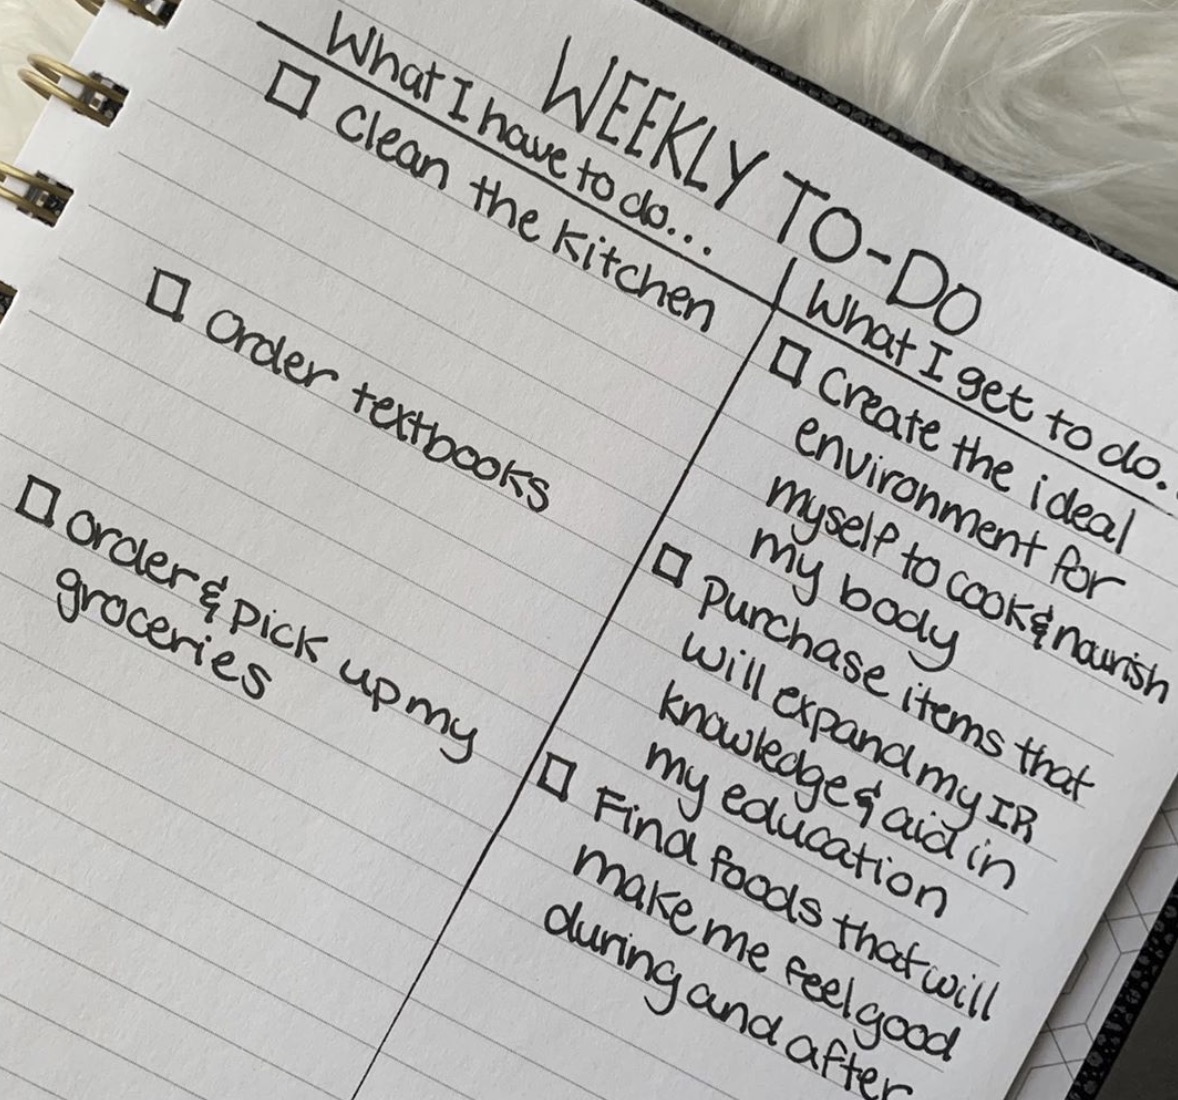 WEEKLY TO-DO
What I have to do...
☐ Clean the kitchen
☐ Order textbooks
☐ Order & pick up my
groceries
What I get to do..
☐ Create the ideal
environment for
myself to cook & nourish
my body
☐ Purchase items that
will expand my IR
knowledge & aid in
my education
☐ Find foods that will
make me feel good
during and after